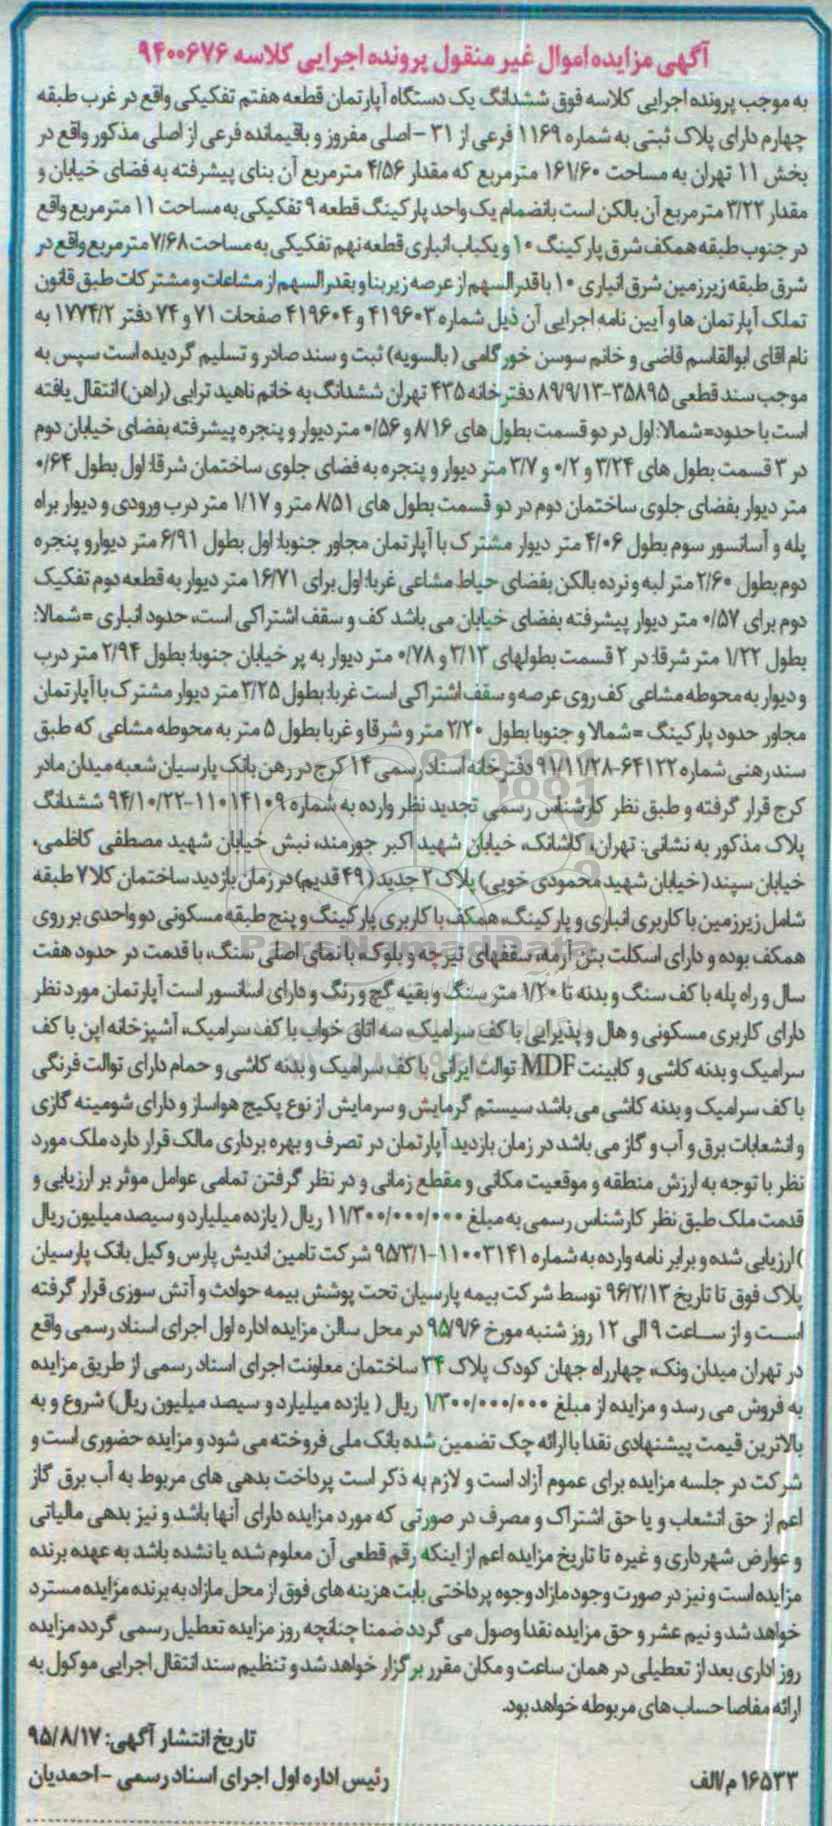 آگهی مزایده اموال غیر منقول پرونده اجرایی کلاسه ۹۴۰۰۶۷۶
به موجب پرونده اجرایی کلاسه فوق ششدانگ یک دستگاه آپارتمان قطعه هفتم تفکیکی واقع در غرب طبقه
چهارم دارای پلاک ثبتی به شماره ۱۱۶۹ فرعی از ۳۱ - اصلی مفروز و باقیمانده فرعی از اصلی مذکور واقع در
بخش ۱۱ تهران به مساحت ۱۶۱/۶۰ مترمربع که مقدار ۴/۵۶ مترمربع آن بنای پیشرفته به فضای خیابان و
مقدار ۳/۲۲ مترمربع آن بالکن است بانضمام یک واحد پارکینگ قطعه ۹ تفکیکی به مساحت ۱۱ مترمربع واقع
در جنوب طبقه همکف شرق پارکینگ ۱۰ و یکباب انباری قطعه نهم تفکیکی به مساحت ۷/۶۸ مترمربع واقع در
شرق طبقه زیرزمین شرق انباری ۱۰ با قدرالسهم از عرصه زیر بنا و بقدرالسهم از مشاعات و مشترکات طبق قانون
تملک آپارتمان ها و آیین نامه اجرایی آن ذیل شماره ۴۱۹۶۰۳ و ۴۱۹۶۰۴ صفحات ۷۱ و ۷۴ دفتر ۱۷۷۴/۲ به
نام اقای ابوالقاسم قاضی و خانم سوسن خورگامی (بالسویه) ثبت و سند صادر و تسلیم گردیده است سپس به
موجب سند قطعی ۳۵۸۹۵-۸۹/۹/۱۳ دفترخانه ۴۳۵ تهران ششدانگ به خانم ناهید ترابی (راهن) انتقال یافته
است با حدود= شمالا: اول در دو قسمت بطول های ۸/۱۶ و ۰/۵۶ متر دیوار و پنجره پیشرفته بفضای خیابان دوم
در ۳ قسمت بطول های ۳/۲۴ و ۰/۲ و ۳/۷ متر دیوار و پنجره به فضای جلوی ساختمان شرقا: اول بطول ۰/۶۴
متر دیوار بفضای جلوی ساختمان دوم در دو قسمت بطول های ۸/۵۱ متر و ۱/۱۷ متر درب ورودی و دیوار براه
پله و آسانسور سوم بطول ۴/۰۶ متر دیوار مشترک با آپارتمان مجاور جنوبا: اول بطول ۶/۹۱ متر دیوارو پنجره
دوم بطول ۲/۶۰ متر لبه و نرده بالکن بفضای حیاط مشاعی غربا: اول برای ۱۶/۷۱ متر دیوار به قطعه دوم تفکیک
دوم برای ۰/۵۷ متر دیوار پیشرفته بفضای خیابان می باشد کف و سقف اشتراکی است، حدود انباری = شمالا:
بطول ۱/۲۲ متر شرقا: در ۲ قسمت بطولهای ۳/۱۳ و ۰/۷۸ متر دیوار به پر خیابان جنوبا: بطول ۲/۹۴ متر درب
و دیوار به محوطه مشاعی کف روی عرصه و سقف اشتراکی است غربا: بطول ۳/۲۵ متر دیوار مشترک با آپارتمان
مجاور حدود پارکینگ = شمالا و جنوبا بطول ۲/۲۰ متر و شرقا و غربا بطول ۵ متر به محوطه مشاعی که طبق
سند رهنی شماره ۶۴۱۲۲-۹۱/۱۱/۲۸ دفترخانه اسناد رسمی ۱۴ کرج در رهن بانک پارسیان شعبه میدان مادر
کرج قرار گرفته و طبق نظر کارشناس رسمی تجدید نظر وارده به شماره ۱۱۰۱۴۱۰۹-۹۴/۱۰/۲۲ ششدانگ
پلاک مذکور به نشانی: تهران، کاشانک، خیابان شهید اکبر جورمند، نبش خیابان شهید مصطفی کاظمی،
خیابان سپند (خیابان شهید محمودی خوبی) پلاک ۲ جدید (۴۹ قدیم) در زمان بازدید ساختمان کلا ۷ طبقه
شامل زیرزمین با کاربری انباری و پارکینگ، همکف با کاربری پارکینگ و پنج طبقه مسکونی دو واحدی بر روی
همکف بوده و دارای اسکلت بتن آرمه، سقفهای تیرچه و بلوک، با نمای اصلی سنگ، با قدمت در حدود هفت
سال و راه پله با کف سنگ و بدنه تا ۱/۲۰ متر سنگ و بقیه گچ و رنگ و دارای اسانسور است آپارتمان مورد نظر
دارای کاربری مسکونی و هال و پذیرایی با کف سرامیک، سه اتاق خواب با کف سرامیک، آشپزخانه اپن با کف
سرامیک و بدنه کاشی و کابینت MDF توالت ایرانی با کف سرامیک و بدنه کاشی و حمام دارای توالت فرنگی
با کف سرامیک و بدنه کاشی می باشد سیستم گرمایش و سرمایش از نوع پکیج هواساز و دارای شومینه گازی
و انشعابات برق و آب و گاز می باشد در زمان بازدید آپارتمان در تصرف و بهره برداری مالک قرار دارد ملک مورد
نظر با توجه به ارزش منطقه و موقعیت مکانی و مقطع زمانی و در نظر گرفتن تمامی عوامل موثر بر ارزیابی و
قدمت ملک طبق نظر کارشناس رسمی به مبلغ ۱۱/۳۰۰/۰۰۰/۰۰۰ ریال (یازده میلیارد و سیصد میلیون ریال
) ارزیابی شده و برابر نامه وارده به شماره ۱۱۰۰۳۱۴۱-۹۵/۳/۱ شرکت تامین اندیش پارس وکیل بانک پارسیان
پلاک فوق تا تاریخ ۹۶/۲/۱۳ توسط شرکت بیمه پارسیان تحت پوشش بیمه حوادث و آتش سوزی قرار گرفته
است و از ساعت ۹ الی ۱۲ روز شنبه مورخ ۹۵/۹/۶ در محل سالن مزایده اداره اول اجرای اسناد رسمی واقع
در تهران میدان ونک، چهارراه جهان کودک پلاک ۳۴ ساختمان معاونت اجرای اسناد رسمی از طریق مزایده
به فروش می رسد و مزایده از مبلغ ۱/۳۰۰/۰۰۰/۰۰۰ ریال (یازده میلیارد و سیصد میلیون ریال) شروع و به
بالاترین قیمت پیشنهادی نقدا با ارائه چک تضمین شده بانک ملی فروخته می شود و مزایده حضوری است و
شرکت در جلسه مزایده برای عموم آزاد است و لازم به ذکر است پرداخت بدهی های مربوط به آب برق گاز
اعم از حق انشعاب و یا حق اشتراک و مصرف در صورتی که مورد مزایده دارای آنها باشد و نیز بدهی مالیاتی
و عوارض شهرداری و غیره تا تاریخ مزایده اعم از اینکه رقم قطعی آن معلوم شده یا نشده باشد به عهده برنده
مزایده است و نیز در صورت وجود مازاد وجوه پرداختی بابت هزینه های فوق از محل مازاد به برنده مزایده مسترد
خواهد شد و نیم عشر و حق مزایده نقدا وصول می گردد ضمنا چنانچه روز مزایده تعطیل رسمی گردد مزایده
روز اداری بعد از تعطیلی در همان ساعت و مکان مقرر برگزار خواهد شد و تنظیم سند انتقال اجرایی موکول به
ارائه مفاصا حساب های مربوطه خواهد بود.
تاریخ انتشار آگهی: ۹۵/۸/۱۷
۱۶۵۳۳ م/الف رئیس اداره اول اجرای اسناد رسمی - احمدیان
ParsNamadData